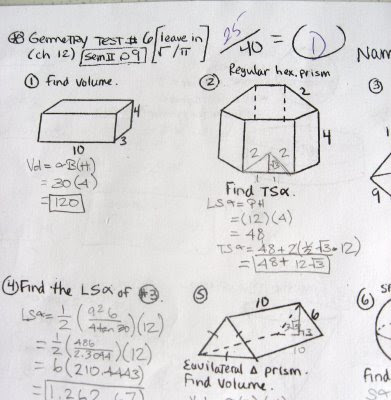 Geometry TEST #6 [leave in √/π]
(ch 12) sem II 09
25/40 = (D)
Nam
① Find volume.
4
10
3
Vol = B(H)
= 30(4)
= 120
② Regular hex. prism
2
4
2 2
√3
1 1
Find TSa.
LSa = PH
= (12)(4)
= 48
TSa = 48 + 2(½·√3·12)
= 48 + 12√3
③
9
④ Find the LSa of #3.
LSa = 1/2 (926/4tan30)(12)
= 1/2 (486/2.3094)(12)
= 6(210.4443)
⑤
10
6
3
10
Equilateral Δ prism.
Find Volume.
⑥
Find